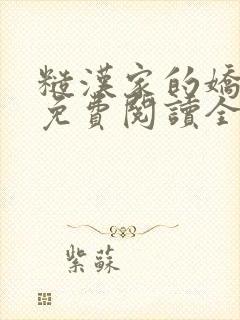 糙漢家的嬌
免費閱讀全
紫蘇